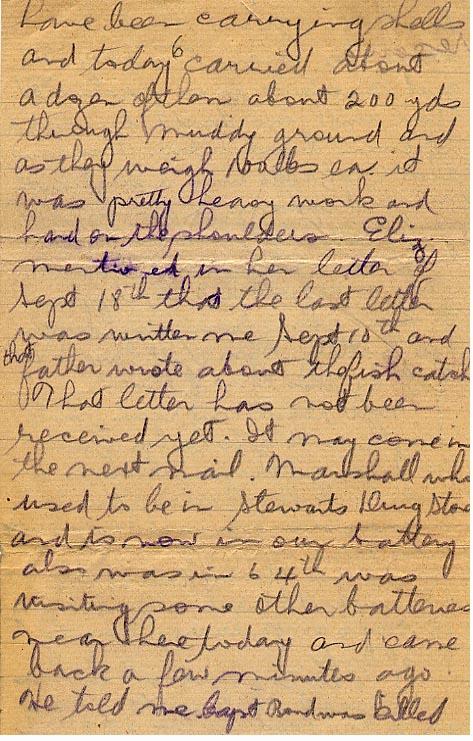 have been carrying shells
and today 6 carried about
a dozen of them about 200 yds
through muddy ground and
as they weigh 100 lbs ea. it
was pretty heavy work and
hard on the shoulders. Eliz
mentioned in her letter of
Sept 18th that the last letter
was written me Sept 10th and
that father wrote about the fish catch
That letter has not been
received yet. It may come in
the next mail. Marshall who
used to be in Stewarts Drug Store
and is now in our battery
also was in 64th was
visiting some other batteries
near here today and came
back a few minutes ago.
He told me Capt was killed